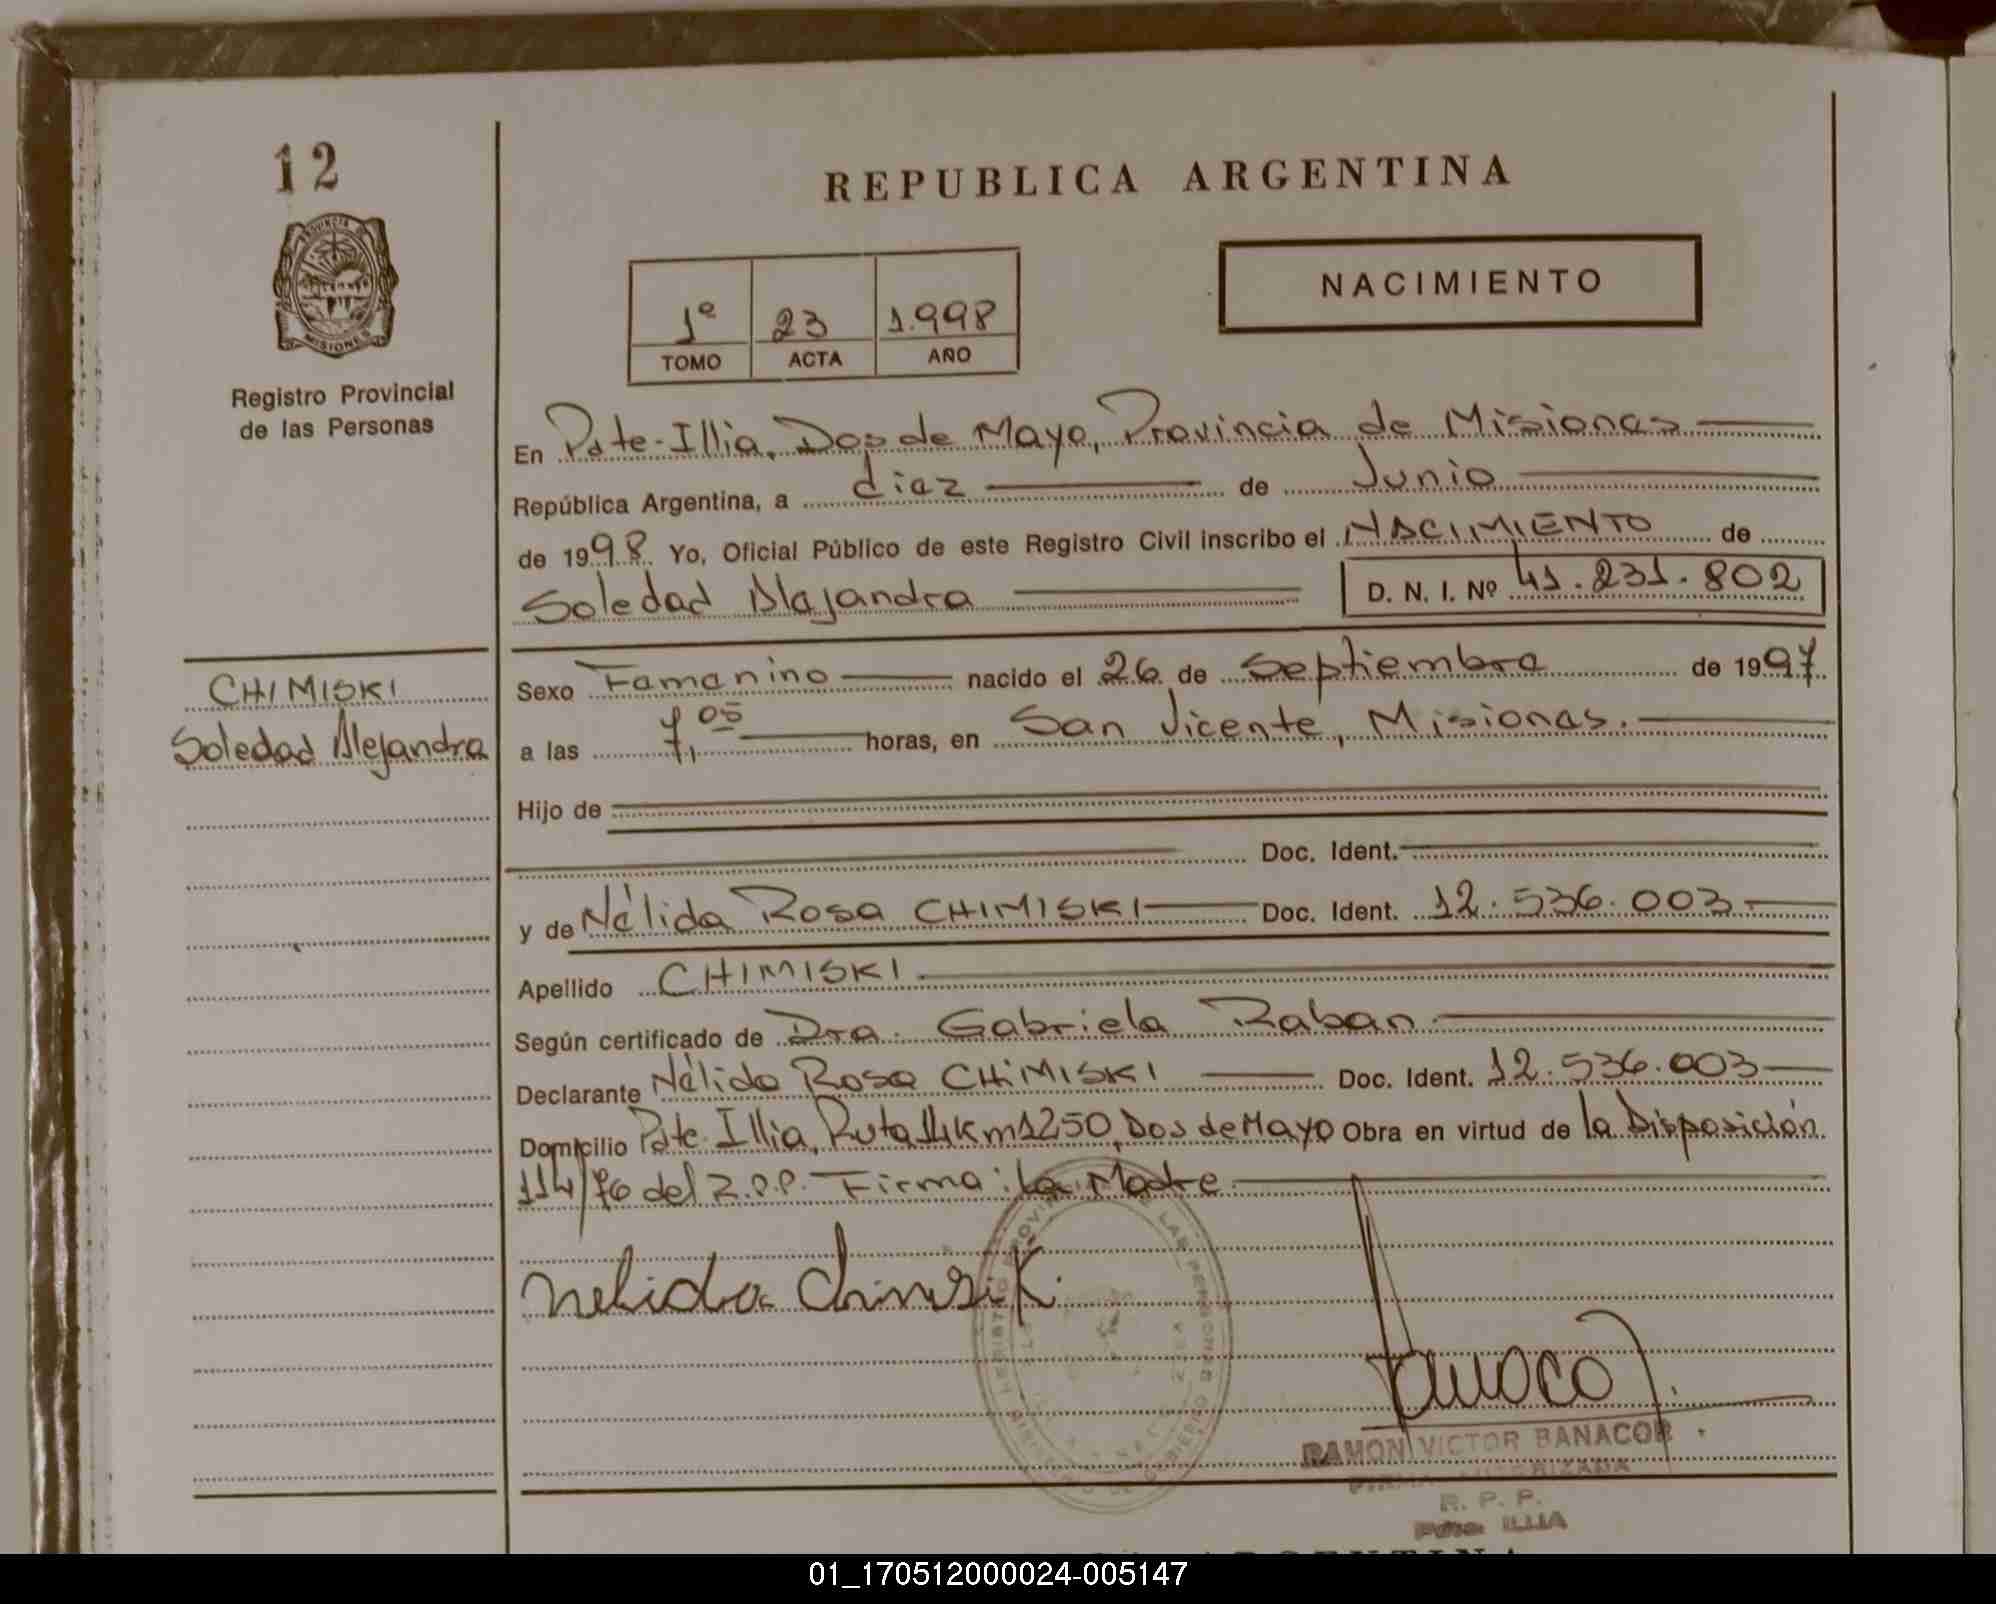 12
PROVINCIA DE
MISIONES
Registro Provincial
de las Personas
CHIMISKI
Soledad Alejandra
REPUBLICA ARGENTINA
1º 23 1.998
TOMO ACTA AÑO
NACIMIENTO
En Pdte. Illia, Dos de Mayo, Provincia de Misiones
República Argentina, a diez de Junio
de 1998 Yo, Oficial Público de este Registro Civil inscribo el NACIMIENTO de
Soledad Alejandra D. N. I. Nº 41.231.802
Sexo Femenino nacido el 26 de Septiembre de 1997
a las 7,05 horas, en San Vicente, Misiones.
Hijo de
Doc. Ident.
y de Nélida Rosa CHIMISKI Doc. Ident. 12.536.003
Apellido CHIMISKI
Según certificado de Dra. Gabriela Raban
Declarante Nélida Rosa CHIMISKI Doc. Ident. 12.536.003
Domicilio Pdte. Illia, Ruta 14 Km 1250, Dos de Mayo Obra en virtud de la Disposición
114/76 del R.P.P. Firma: La Madre
Nelida Chimsik
RAMON VICTOR BANACOR
R. P. P.
Pdte. ILLIA
01_170512000024-005147